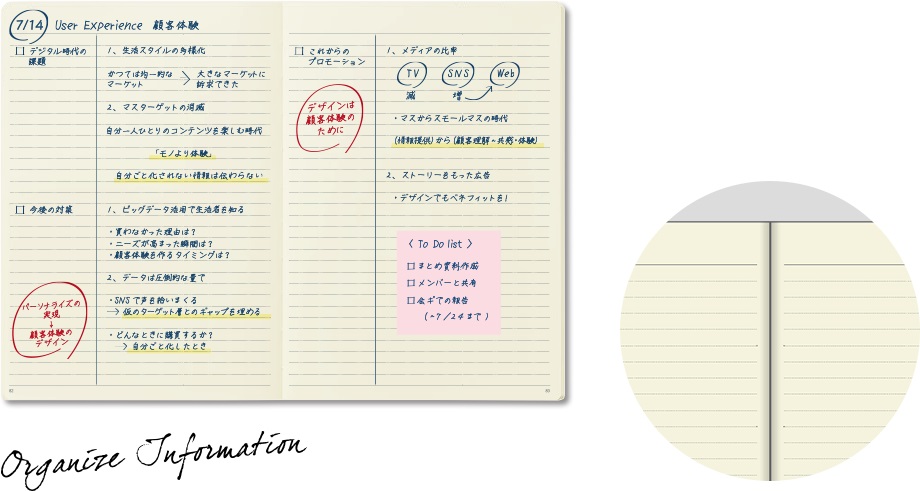 7/14 User Experience 顧客体験
□ デジタル時代の
課題
1、生活スタイルの多様化
かつては均一的な
マーケット
> 大きなマーケットに
訴求できた
2、マスターゲットの消滅
自分一人ひとりのコンテンツを楽しむ時代
「モノより体験」
自分ごと化されない情報は伝わらない
□ 今後の対策
1、ビッグデータ活用で生活者を知る
・買わなかった理由は?
・ニーズが高まった瞬間は?
・顧客体験を作るタイミングは?
2、データは圧倒的な量で
・SNSで声を拾いまくる
→仮のターゲット層とのギャップを埋める
・どんなときに購買するか?
→自分ごと化したとき
パーソナライズの
実現
↓
顧客体験の
デザイン
□ これからの
プロモーション
1、メディアの比率
TV SNS Web
減 増
デザインは
顧客体験の
ために
・マスからスモールマスの時代
(情報提供)から(顧客理解〜共感・体験)
2、ストーリーをもった広告
・デザインでもベネフィットを!
〈 To Do list 〉
□ まとめ資料作成
□ メンバーと共有
□ 会ギでの報告
(~7/24まで)
Organize Information